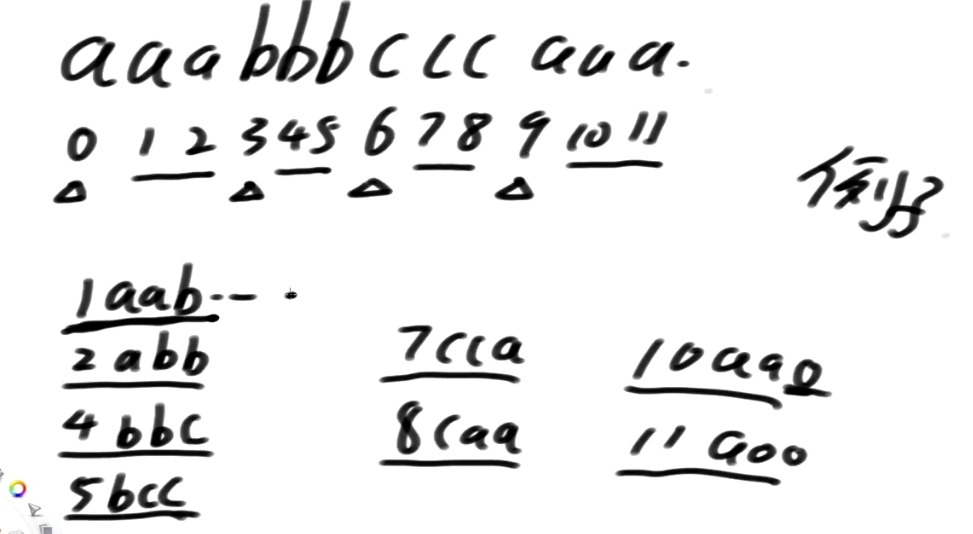 aaabbbccc aaa.
0 1 2 3 4 5 6 7 8 9 10 11
1aab
2abb
4bbc
5bcc
7cca
8caa
10aa0
11a00